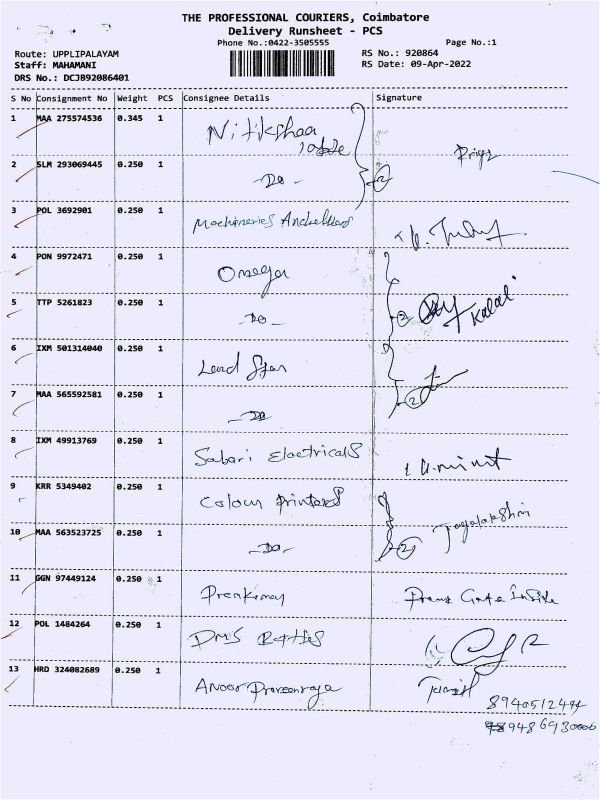 THE PROFESSIONAL COURIERS, Coimbatore
Delivery Runsheet - PCS
Phone No.:0422-3505555 Page No.:1
Route: UPPLIPALAYAM RS No.: 920864
Staff: MAHAMANI RS Date: 09-Apr-2022
DRS No.: DCJB92086401
S No Consignment No Weight PCS Consignee Details Signature
1 MAA 275574536 0.345 1 Nitikshaa
2 SLM 293069445 0.250 1 -Do- 2
3 POL 3692901 0.250 1 Machineries
4 PON 9972471 0.250 1 Omega
5 TTP 5261823 0.250 1 -Do- 2 Kalai
6 IXM 501314040 0.250 1 Lead Star
7 MAA 565592581 0.250 1 -Do- 2
8 IXM 49913769 0.250 1 Sabari Electricals
9 KRR 5349402 0.250 1 Colour Printers
10 MAA 563523725 0.250 1 -Do- 2
11 GGN 97449124 0.250 1 Premkumar
12 POL 1484264 0.250 1 DMS
13 HRD 324082689 0.250 1 Anoor Praveenraja Tamil